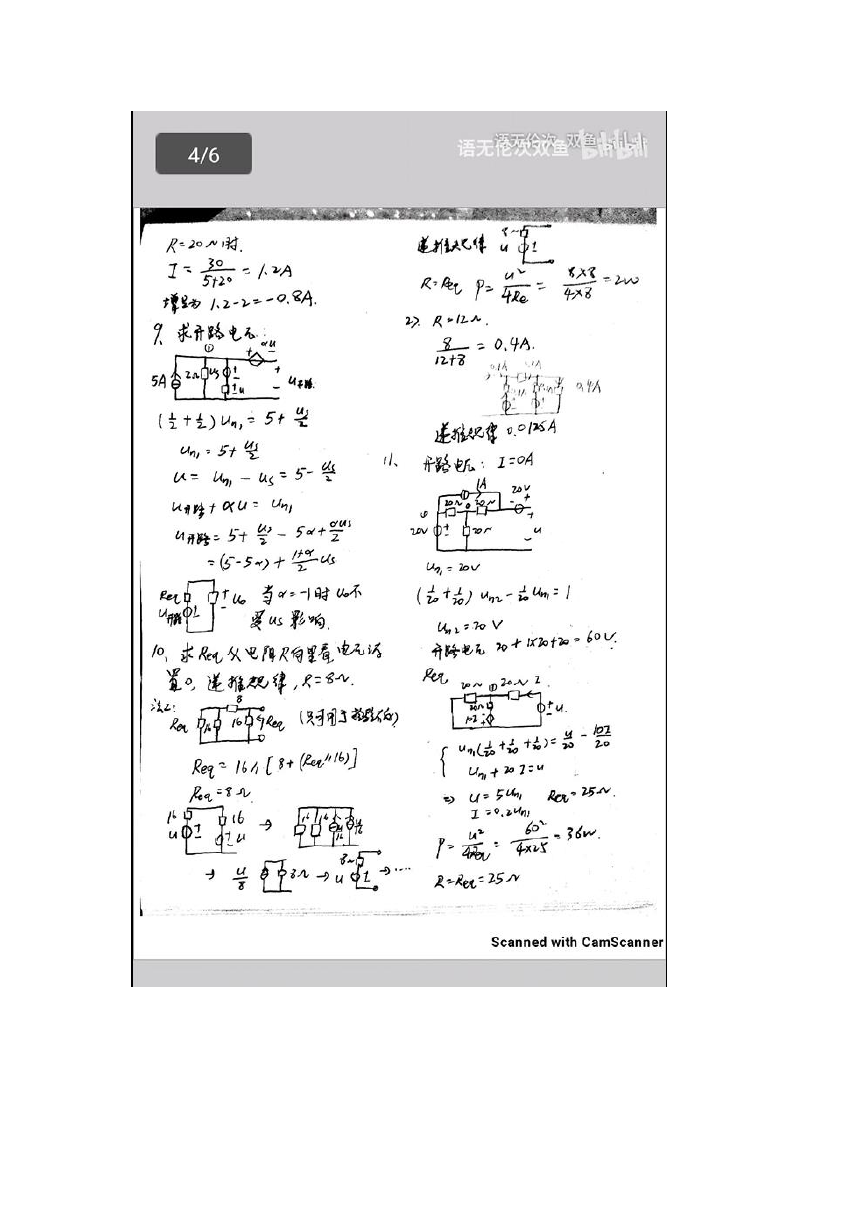 4/6
语无伦次双鱼 bilibili
R=20Ω时.
I = 30/(5+20) = 1.2A
增量为 1.2-2=-0.8A.
9、求开路电压:
① + αu -
5A 2Ω us + - + u开路
+ u - -
(1/2+1/2) un1 = 5 + us/2
un1 = 5 + us/2
u = un1 - us = 5 - us/2
u开路 + αu = un1
u开路 = 5 + us/2 - 5α + αus/2
= (5-5α) + (1+α)/2 us
Req u开路 + u0 - 当α=-1时u0不
受us影响.
10、求Req 从电阻R向里看,电压源
置0, 递推规律, R=8Ω.
法2: 8
Req 16 16 Req
Req = 16 // [8+(Req//16)]
Req = 8Ω
16 16
u + - + - u → 16 16 u/16 u/16
→ u/8 8Ω → u 8Ω → ……
递推规律 u 8Ω
R=Req P= u²/4Re = 8×8/4×8 = 2w
2>. R=12Ω.
8/(12+8) = 0.4A.
0.4A
递推规律 0.0125A
11、 开路电压: I=0A
1A 20V
20Ω 20Ω - +
20V + - 20Ω u
-
un1 = 20V
(1/20+1/20) un2 - 1/20 un1 = 1
un2 = 20 V
开路电压 20+1×20+20=60V.
Req 20Ω ① 20Ω I
20Ω
10I + - + - u.
un1(1/20+1/20+1/20) = u/20 - 10I/20
un1 + 20I = u
⇒ u = 5un1 Req=25Ω.
I = 0.2un1
P= u²/4Req = 60²/4×25 = 36w.
R=Req=25Ω
Scanned with CamScanner